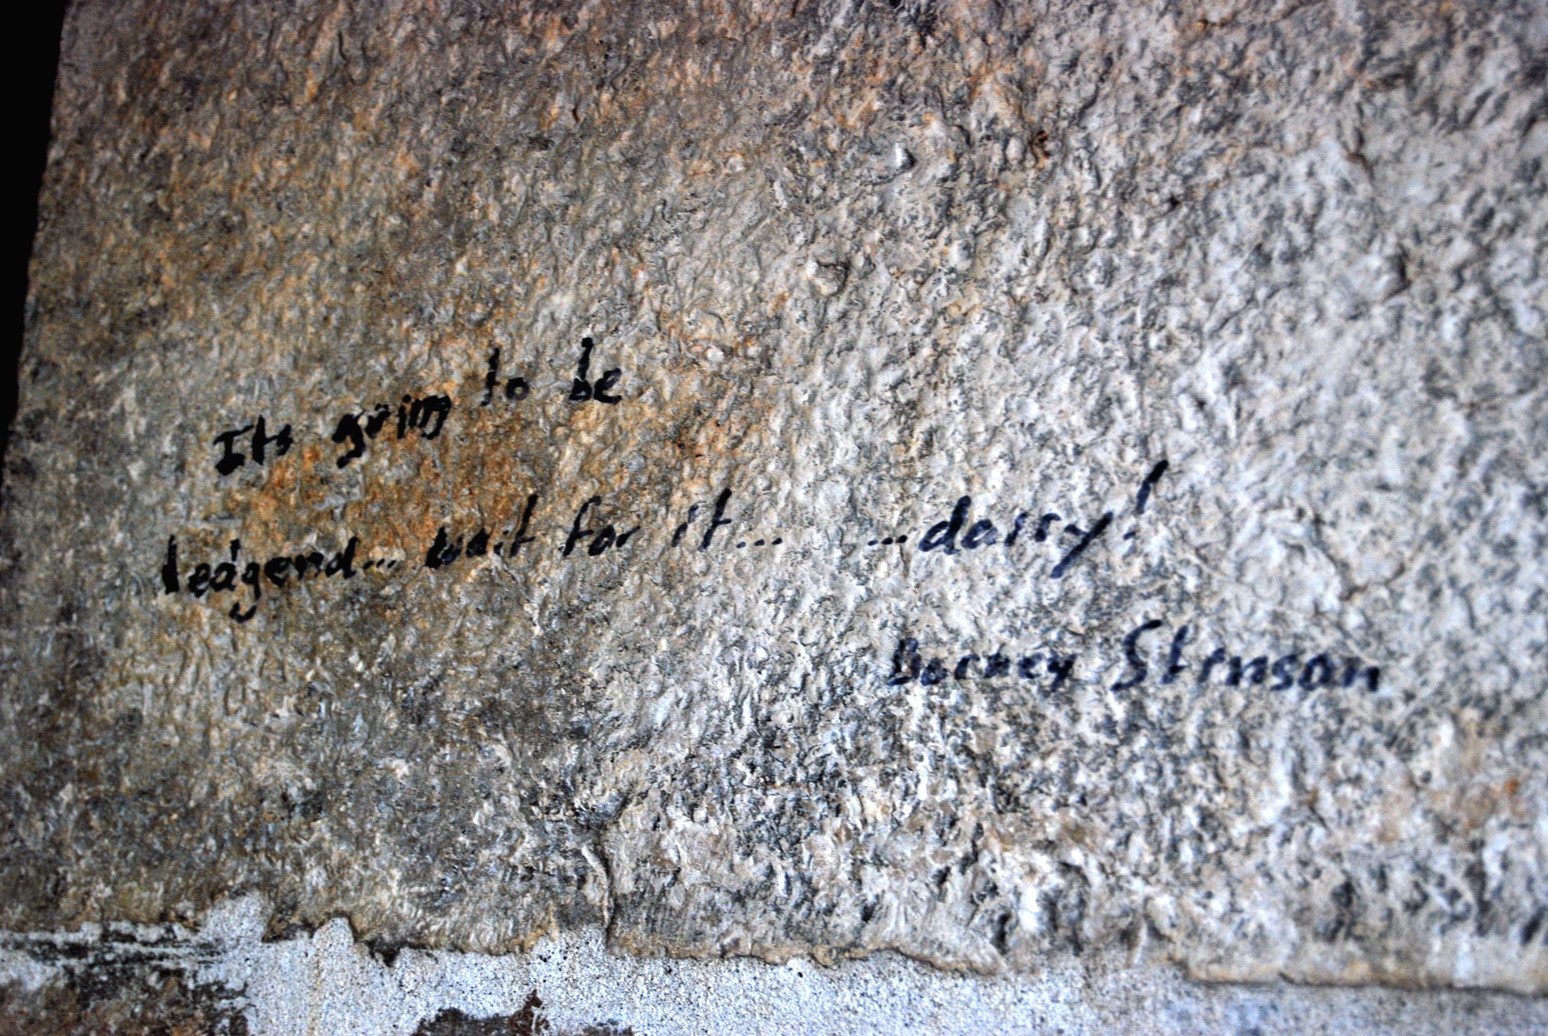 Its going to be
leadgend... wait for it... ...dairy!
Barney Stinson